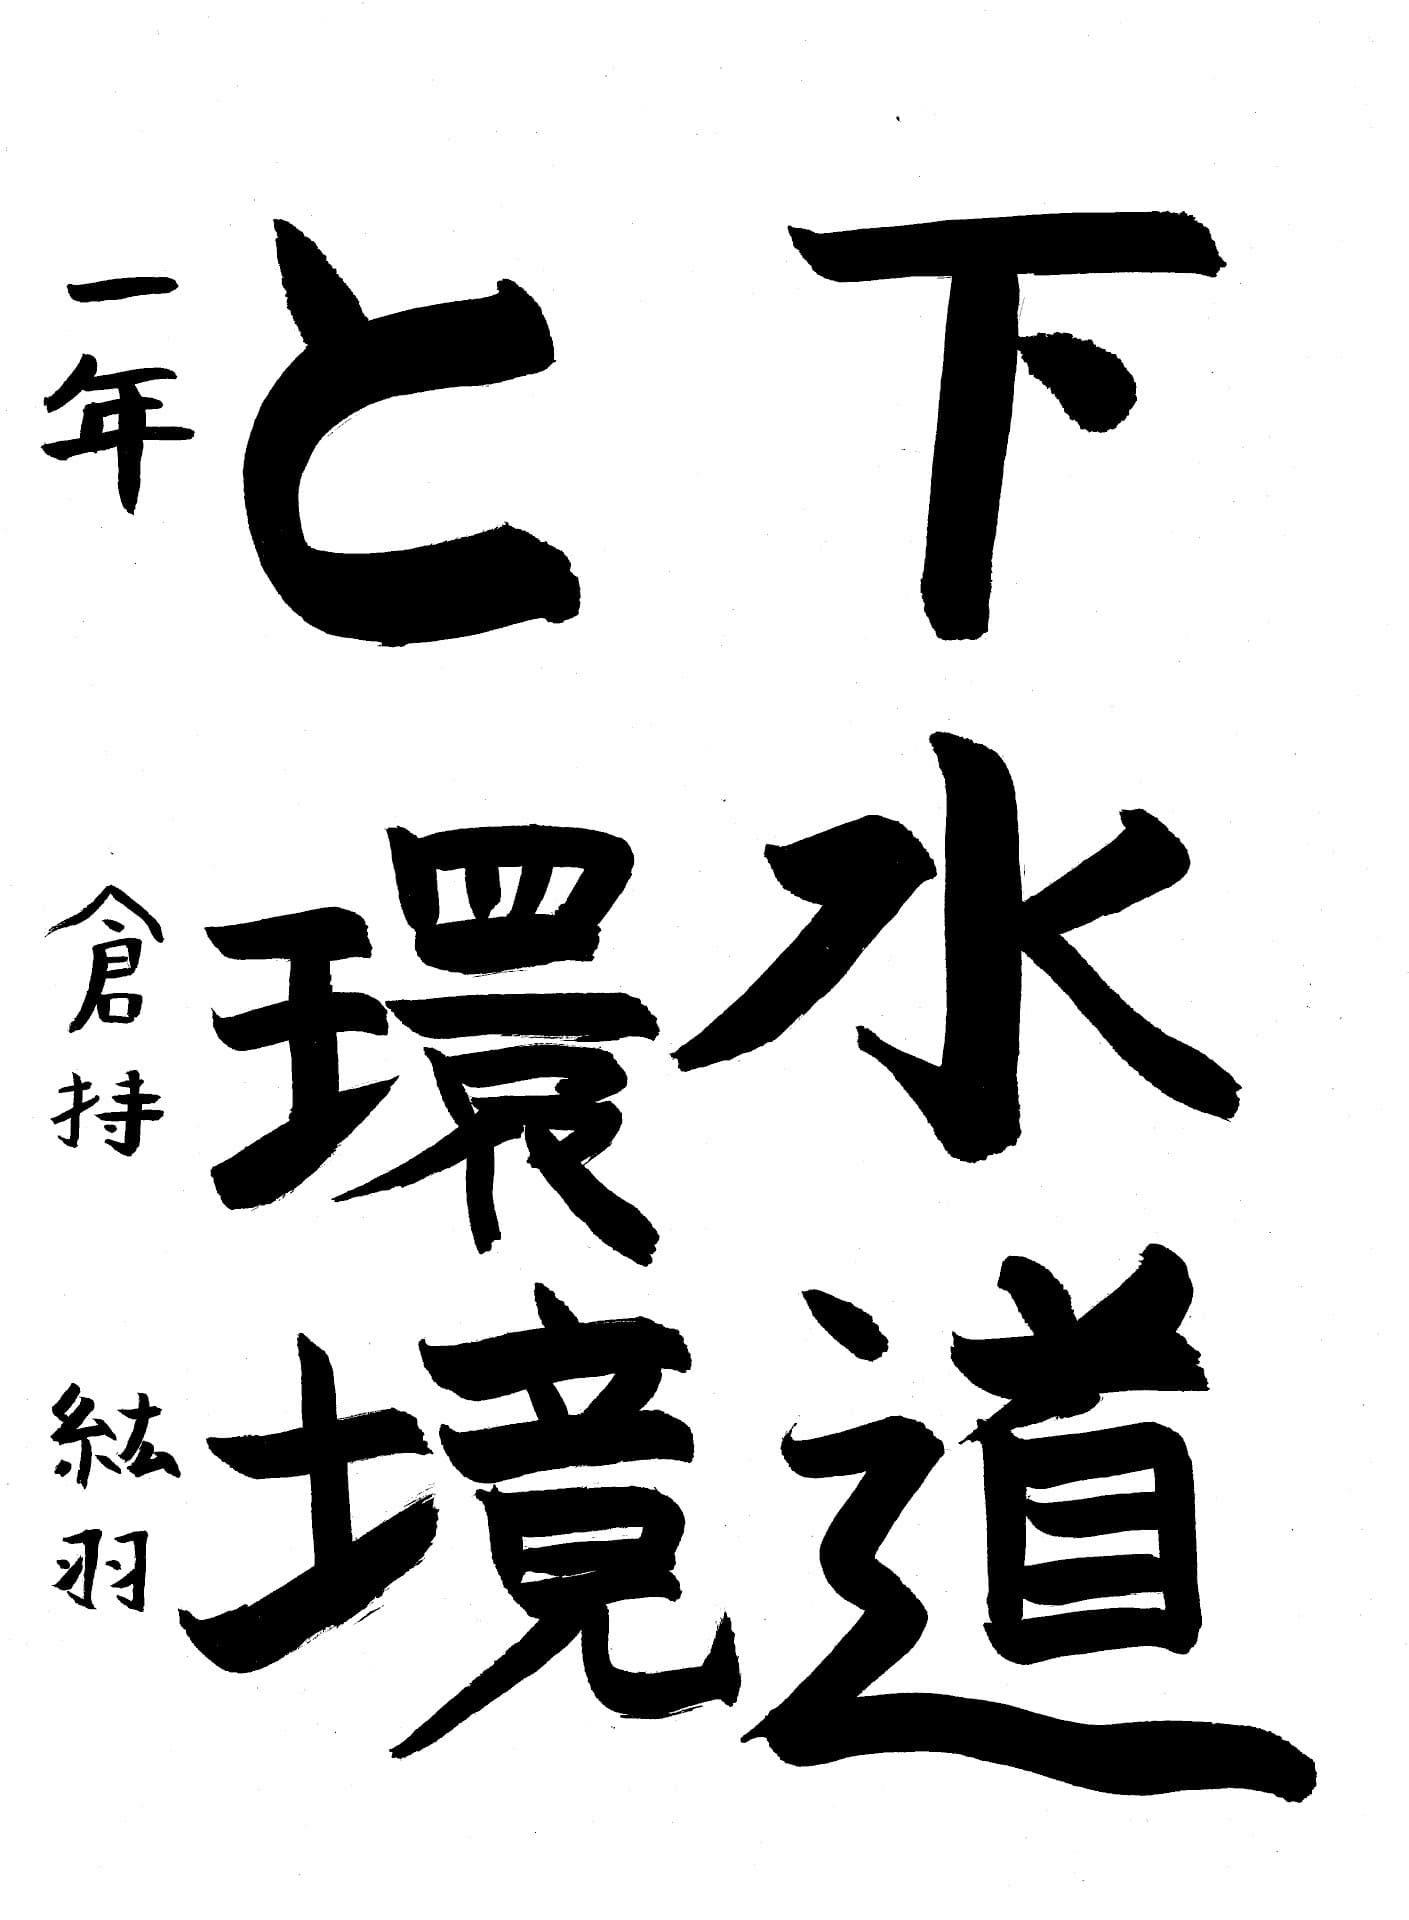 下水道
と環境
一年 倉持 紘羽